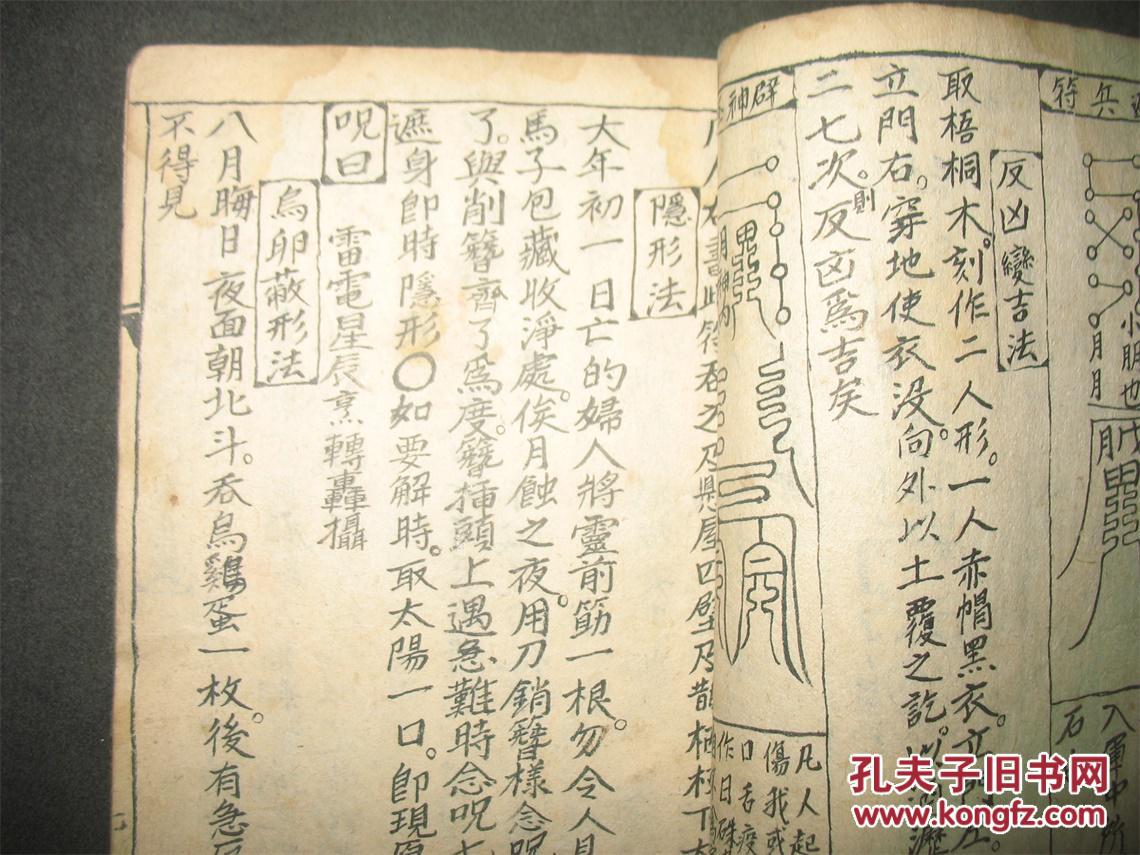 兵符
小朋也
月月
入軍中所
石
反凶變吉法
取梧桐木。刻作二人形。一人赤帽黑衣。立
立門右。穿地使衣没向外。以土覆之訖。以
二七次。則反凶爲吉矣
辟神
凡人起
傷我或
口舌疫
作日硃
書此符吞之乃懸屋四壁乃
隱形法
大年初一日亡的婦人將靈前筯一根。勿令人見
馬子包藏收淨處。俟月蝕之夜。用刀銷簪樣念呪
了。與削簪齊了爲度。簪插頭上遇急難時念呪七
遮身卽時隱形〇如要解時。取太陽一口。卽現原
呪曰
雷電星辰烹轉轟攝
烏卵蔽形法
八月晦日夜面朝北斗。吞烏雞蛋一枚。後有急
不得見
孔夫子旧书网
www.kongfz.com